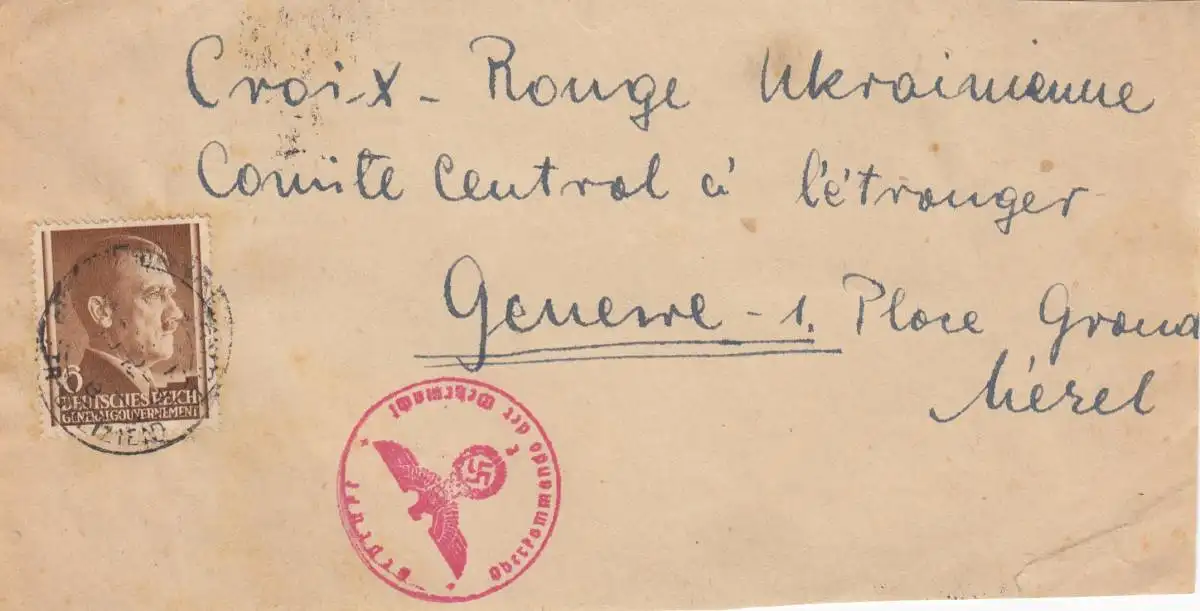 Croix-Rouge Ukrainienne
Comite Central à l'étranger
Geneve - 1. Place Grand
Mézel
6
DEUTSCHES REICH
GENERALGOUVERNEMENT
Oberkommando der Wehrmacht
Geprüft